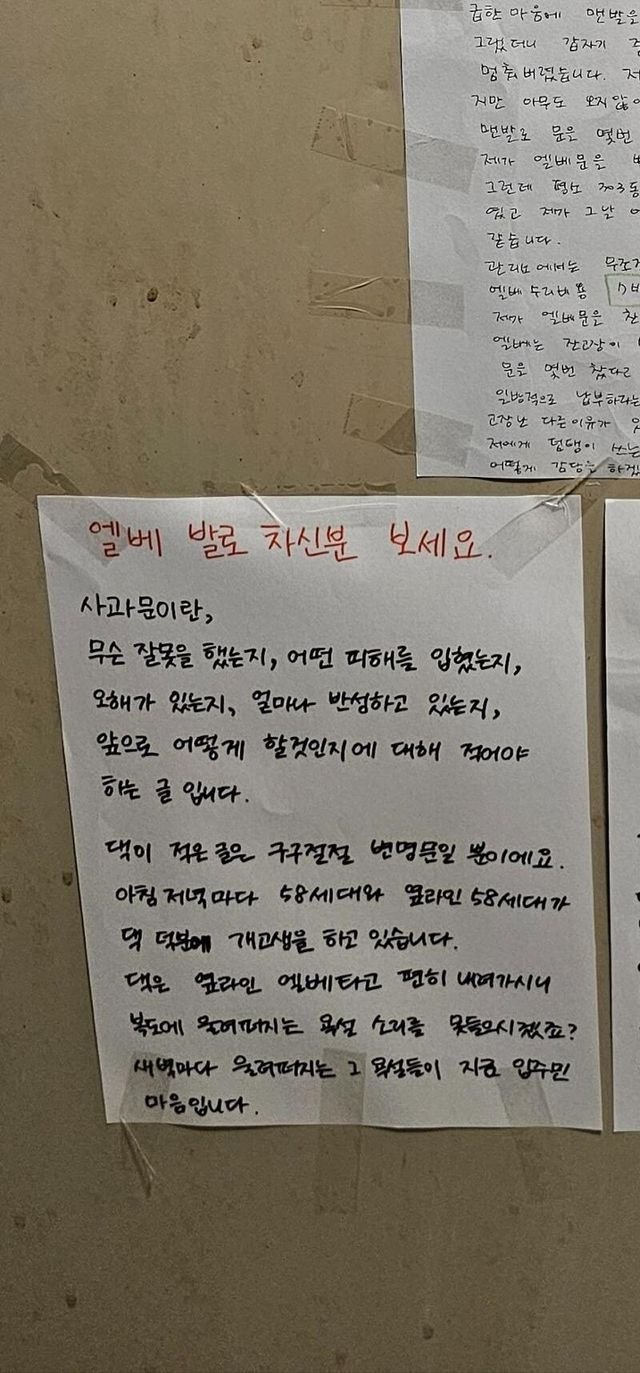 급한 마음에 맨발을
그랬더니 갑자기
멈춰버렸습니다.
지만 아무도 오지않
맨발로 문을 몇번
제가 엘베문을
그런데 평소 303동
였고 제가 그날
같습니다.
관리실에서는 무조건
엘베 수리비용
제가 엘베문을 찬
엘베는 잔고장이
문을 몇번 찼다고
일방적으로 납부하라는
고장난 다른이유가
저에게 덤탱이 쓰는
어떻게 감당을 하겠
엘베 발로 차신분 보세요.
사과문이란,
무슨 잘못을 했는지, 어떤 피해를 입혔는지,
오해가 있는지, 얼마나 반성하고 있는지,
앞으로 어떻게 할것인지에 대해 적어야
하는 글 입니다.
댁이 적은 글은 구구절절 변명문일 뿐이에요.
아침저녁마다 58세대와 옆라인 58세대가
댁 덕분에 개고생을 하고 있습니다.
댁은 옆라인 엘베타고 편히 내려가시니
복도에 울려퍼지는 욕설 소리를 못들으시겠죠?
새벽마다 울려퍼지는 그 욕설들이 지금 입주민
마음입니다.